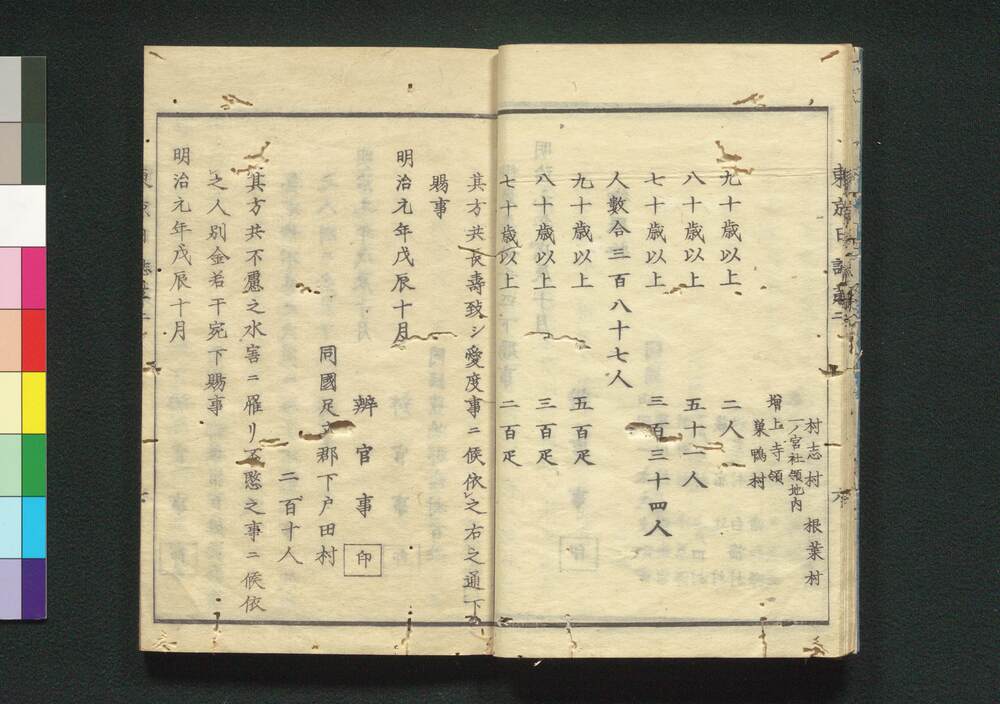 村志村 根葉村
一ノ宮社領地内
増上寺領
巣鴨村
九十歳以上 二人
八十歳以上 五十一人
七十歳以上 三百三十四人
人數合三百八十七人
九十歳以上 五百疋
八十歳以上 三百疋
七十歳以上 二百疋
其方共長壽致シ愛度事ニ候依之右之通下
賜事
明治元年戊辰十月
辨官事 印
同國足立郡下戸田村
二百十人
其方共不慮之水害ニ罹リ不愍之事ニ候依
之人別金若干宛下賜事
明治元年戊辰十月